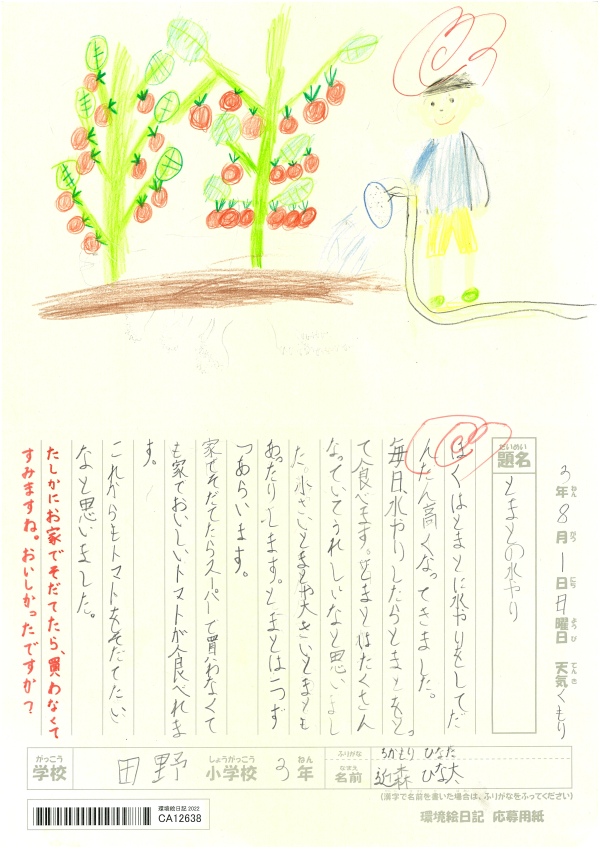 3年8月1日日曜日 天気くもり
題名 とまとの水やり
ぼくはとまとに水やりをしてだ
んだん高くなってきました。
毎日、水やりしたらとまとをと。
て食べます。とまとはたくさん
なっていてうれしいなと思いまし
た。小さいとまとや大きいとまとも
あったりします。とまとは一つず
つあらいます。
家でそだてたらスーパーで買わなくて
も家でおいしいトマトが食べれま
す。
これからもトマトをそだてたい
なと思いました。
たしかにお家でそだてたら、買わなくて
すみますね。おいしかったですか?
学校 田野 小学校 3年
ふりがな ちかもり ひなた
名前 近森 ひな大
(漢字で名前を書いた場合は、ふりがなをふってください)
環境絵日記 応募用紙
環境絵日記 2022
CA12638